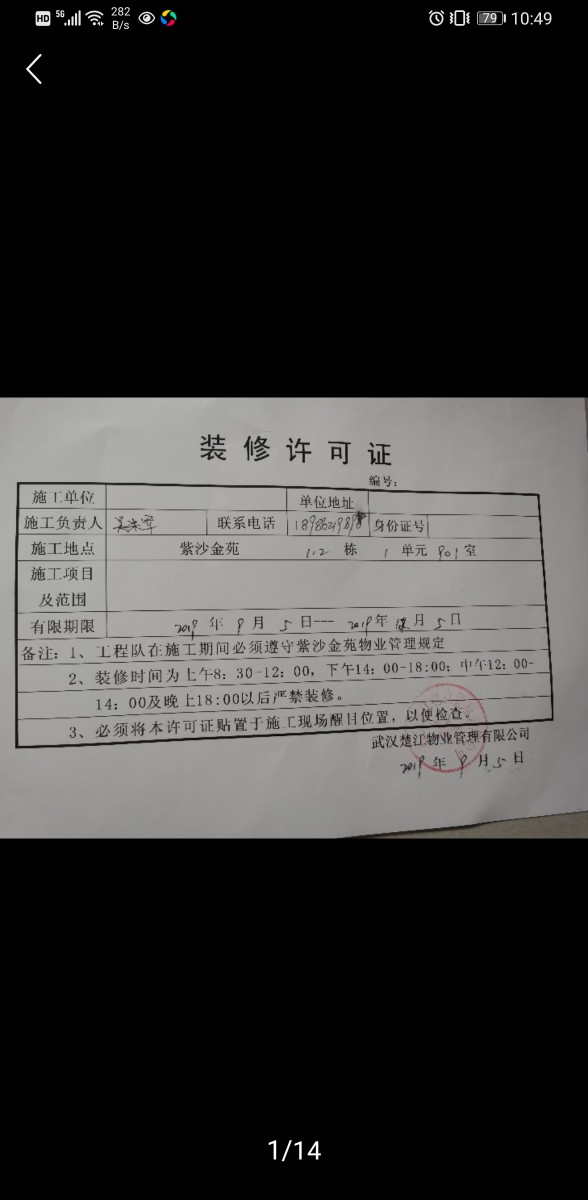 HD 5G 282 B/s 79 10:49
装修许可证
编号：
施工单位 单位地址
施工负责人 联系电话 身份证号
施工地点 紫沙金苑 栋 1 单元 901 室
施工项目
及范围
有限期限 2019 年 9 月 5 日--- 2019 年 月 5 日
备注：1、工程队在施工期间必须遵守紫沙金苑物业管理规定
2、装修时间为上午8：30-12：00，下午14：00-18:00；中午12：00-
14：00及晚上18:00以后严禁装修。
3、必须将本许可证贴置于施工现场醒目位置，以便检查。
武汉楚江物业管理有限公司
2019 年 9 月 5 日
1/14